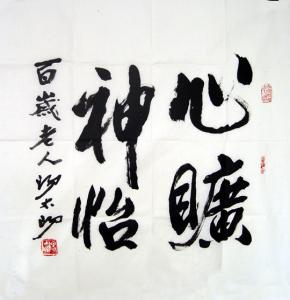 心矌
神怡
百歲老人